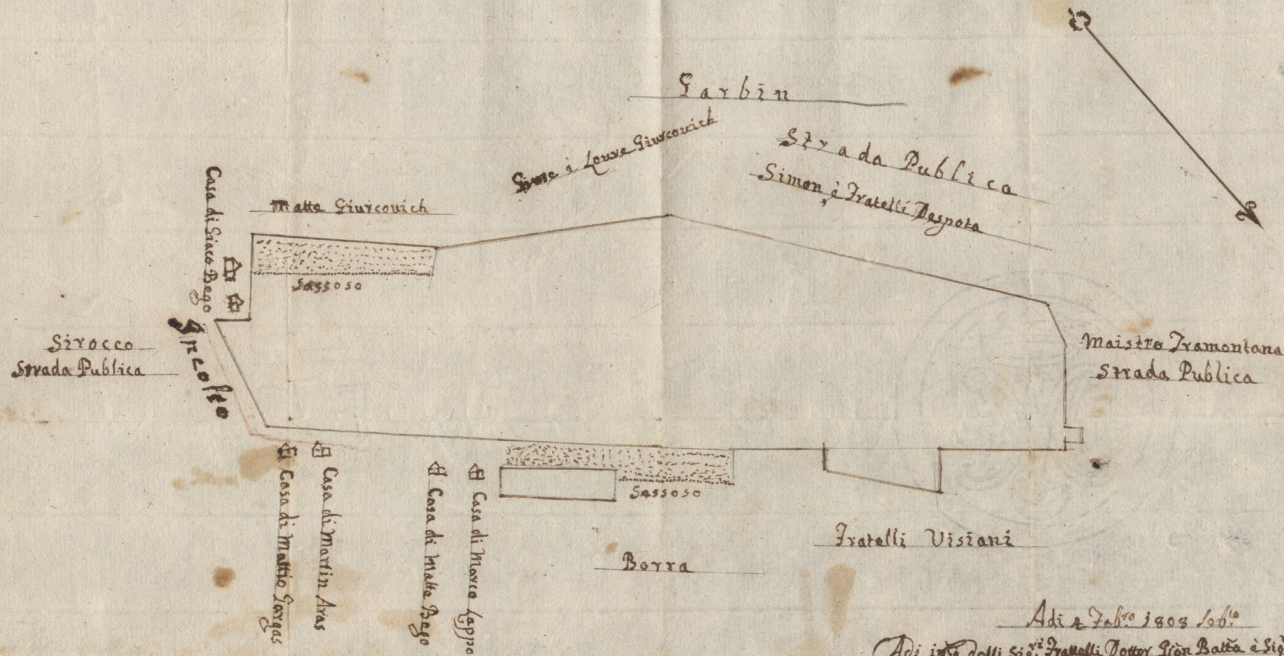 O
Garbin
Sime i Loure Giurcovich
Strada Publica
Simon è Fratelli Despota
Matte Giurcovich
Casa di Giaco Bego
Sassoso
Sirocco
Strada Publica
Maistro Tramontana
Strada Publica
Casa di Mattio Gargas
Casa di Martin Aras
Casa di Matte Bego
Casa di Marco Lappo
Sassoso
Borra
Fratelli Visiani
Adi 4 Febro 1808
Fratelli Dottor Giõn Batta è